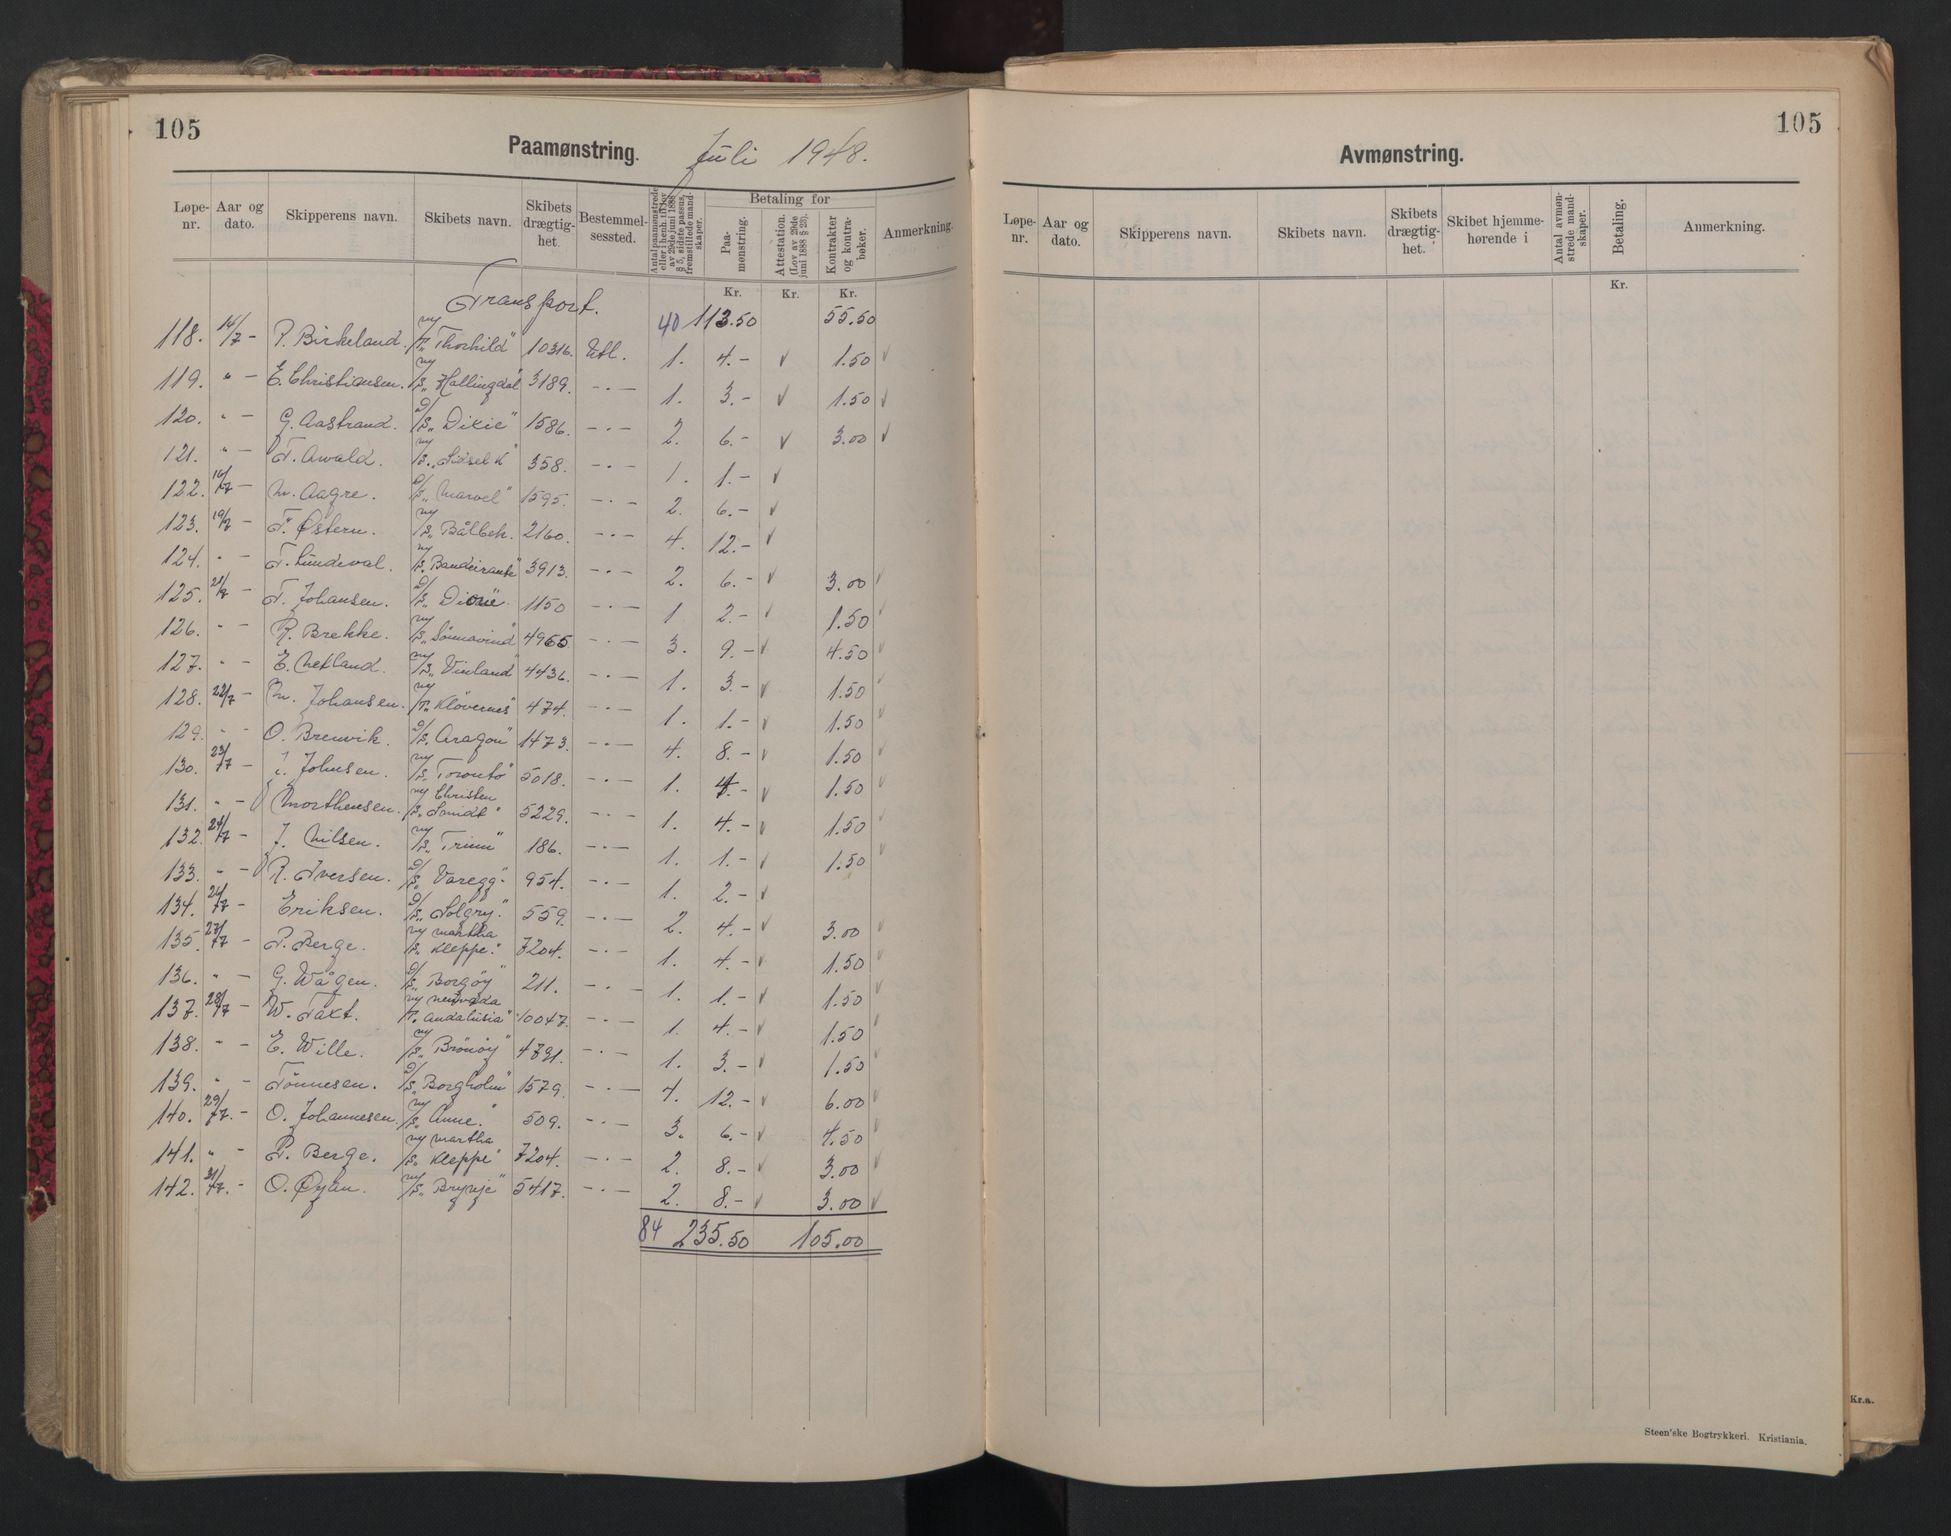 105
Paamønstring. Juli 1948.
Løpe-nr. Aar og dato. Skipperens navn. Skibets navn. Skibets drægtig-het. Bestemmel-sessted. Antal paamønstrede eller i henh. til lov av 29de juni 1888 § 5, sidste passus, fremstillede mand-skaper. Betaling for Paa-mønstring. Attestation. (Lov av 29de juni 1888 § 23). Kontrakter og kontra-bøker. Anmerkning.
Kr. Kr. Kr.
Transport. 40 113.50 55.50
118. 14/7 - R. Birkeland. M/T. „Thorshild" 10316. Utl. 1. 4.- ✓ 1.50 ✓
119. " - E. Christiansen. M/S. „Hallingdal" 3189. -.- 1. 3.- ✓ 1.50 ✓
120. " - G. Aastrand. D/S. „Dixie" 1586. -.- 2. 6.- ✓ 3.00 ✓
121. " - T. Awald. M/S. „Sidsel K" 358. -.- 1. 1.- ✓
122. 16/7 - M. Aagre. D/S. „Marvel" 1595. -.- 2. 6.- ✓
123. 19/7 - F. Østern. M/S. „Bålbek. 2160. -.- 4. 12.- ✓
124. " - T. Lundeval. M/S. „Bandeirante" 3913. -.- 2. 6.- ✓ 3.00 ✓
125. 21/7 - T. Johansen. D/S. „Dione. 1150 -.- 1 2.- ✓ 1.50 ✓
126. " - R. Brekke. M/S. „Sønnavind" 4965 -.- 3. 9.- ✓ 4.50 ✓
127. " - E. Netland. M/S. „Vinland" 4436. -.- 1. 3.- ✓ 1.50 ✓
128. 22/7 - M. Johansen. M/T. „Kløvernes" 474. -.- 1. 1.- ✓ 1.50 ✓
129. " - O. Brenvik. D/S. „Aragon" 1473. -.- 4. 8.- ✓ 1.50 ✓
130. 23/7 - J. Johnsen. M/S. „Toronto" 5018. -.- 1. 4.- ✓ 1.50 ✓
131. " - Morthensen. M/S. „Christen Smidt" 5229. -.- 1. 4.- ✓ 1.50 ✓
132. 24/7 - J. Nilsen. M/S. „Trim" 186. -.- 1. 1.- ✓ 1.50 ✓
133. " - R. Iversen. D/S. „Varegg" 954. -.- 1. 2.- ✓
134. 26/7 - Eriksen. D/S. „Solgry." 559. -.- 2. 4.- ✓ 3.00 ✓
135. 27/7 - P. Berge. M/S. „Martha Kleppe." 7204. -.- 1. 4.- ✓ 1.50 ✓
136. " - G. Wågen. D/S. „Borgøy" 211. -.- 1. 1.- ✓ 1.50 ✓
137. 28/7 - W. Taxt. M/T. Nevada Andalusia" 10047. -.- 1. 4.- ✓ 1.50 ✓
138. " - E. Wille. M/S. „Brønøy" 4791. -.- 1. 3.- ✓ 1.50 ✓
139. " - Tønnesen. D/S. „Borgholm" 1579. -.- 4. 12.- ✓ 6.00 ✓
140. 29/7. - O. Johannesen. M/S. „Anne." 509. -.- 3. 6.- ✓ 4.50 ✓
141. " - P. Berge. M/S. „Martha Kleppe" 7204. -.- 2. 8.- ✓ 3.00 ✓
142. 31/7. - O. Øyån. M/S. „Brynje" 5417. -.- 2. 8.- ✓ 3.00 ✓
84 235.50 105.00
105
Avmønstring.
Løpe-nr. Aar og dato. Skipperens navn. Skibets navn. Skibets drægtig-het. Skibet hjemme-hørende i Antal avmøn-strede mand-skaper. Betaling. Anmerkning.
Kr.
Kr.a.
Steen'ske Bogtrykkeri. Kristiania.